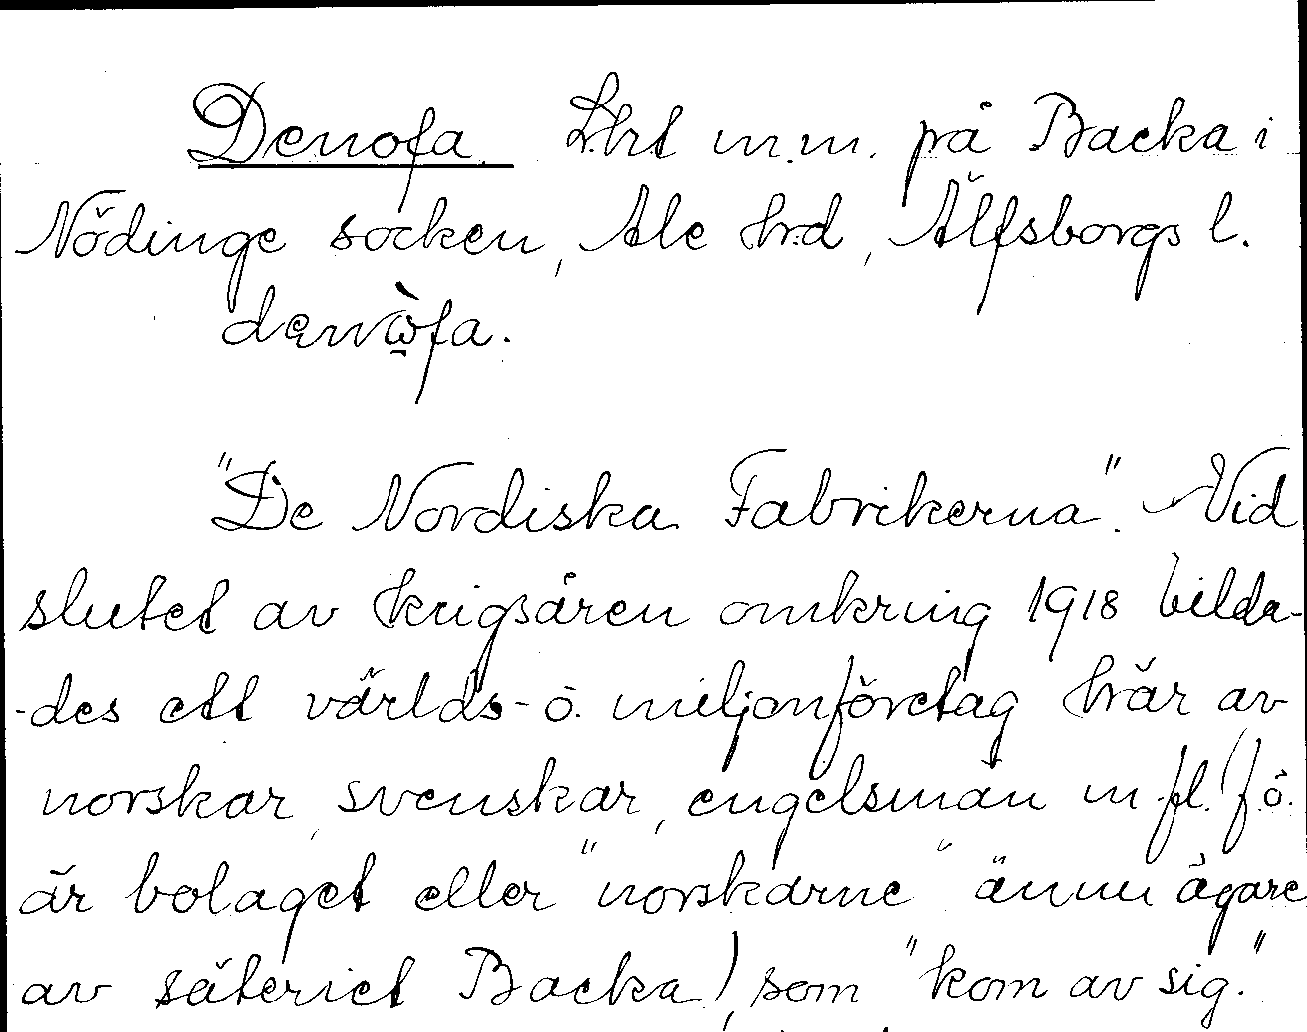 Denofa. Lht m.m. på Backa i
Nödinge socken, Ale hrd, Älfsborgs l.
"De Nordiska Fabrikerna". Vid
slutet av krigsåren omkring 1918 bilda-
-des ett världs- o. miljonföretag här av
norskar, svenskar, engelsmän m.fl. (f.ö.
är bolaget eller "norskarne" ännu ägare
av säteriet Backa), som "kom av sig."